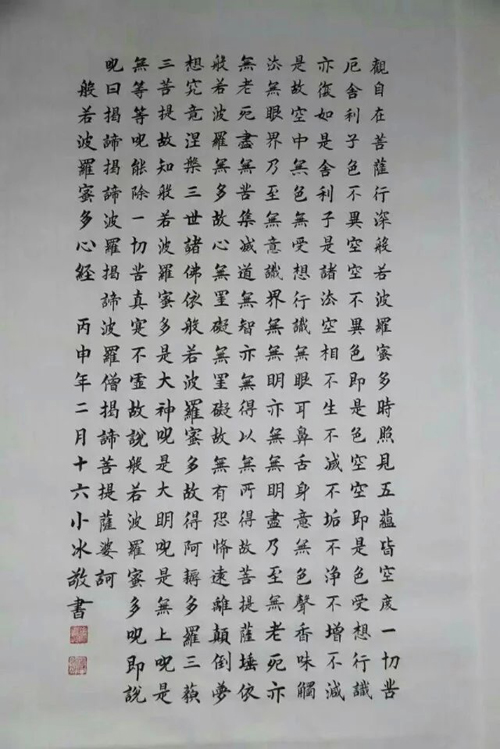 觀自在菩薩行深般若波羅蜜多時照見五蘊皆空度一切苦
厄舍利子色不異空空不異色即是色空空即是色受想行識
亦復如是舍利子是諸法空相不生不滅不垢不淨不增不減
是故空中無色無受想行識無眼耳鼻舌身意無色聲香味觸
法無眼界乃至無意識界無無明亦無無明盡乃至無老死亦
無老死盡無苦集滅道無智亦無得以無所得故菩提薩埵依
般若波羅蜜多故心無罣礙無罣礙故無有恐怖遠離顛倒夢
想究竟涅槃三世諸佛依般若波羅蜜多故得阿耨多羅三藐
三菩提故知般若波羅蜜多是大神呪是大明呪是無上呪是
無等等呪能除一切苦真實不虛故說般若波羅蜜多呪即說
呪曰揭諦揭諦波羅揭諦波羅僧揭諦菩提薩婆訶
般若波羅蜜多心經 丙申年二月十六小冰敬書